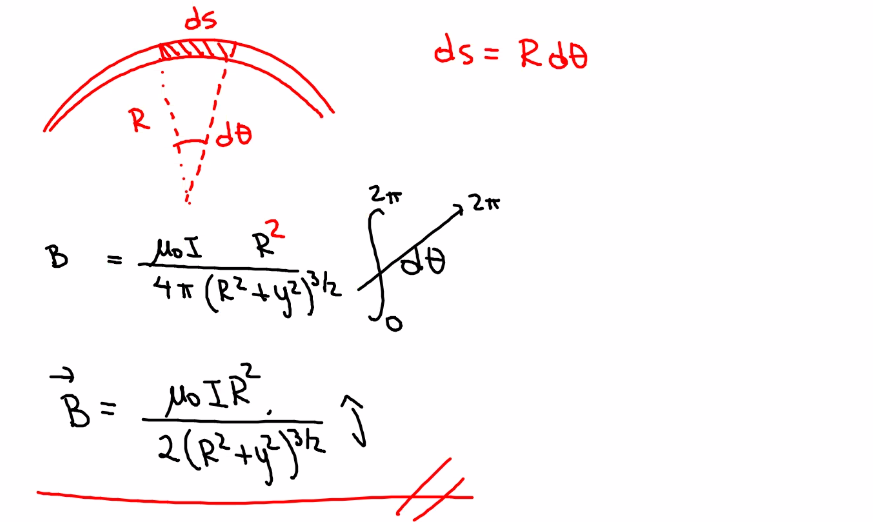 ds
ds = R dθ
R
dθ
B = μ₀I R² / 4π (R² + y²)^3/2 ∫₀^2π dθ 2π
B⃗ = μ₀IR² / 2(R² + y²)^3/2 ĵ